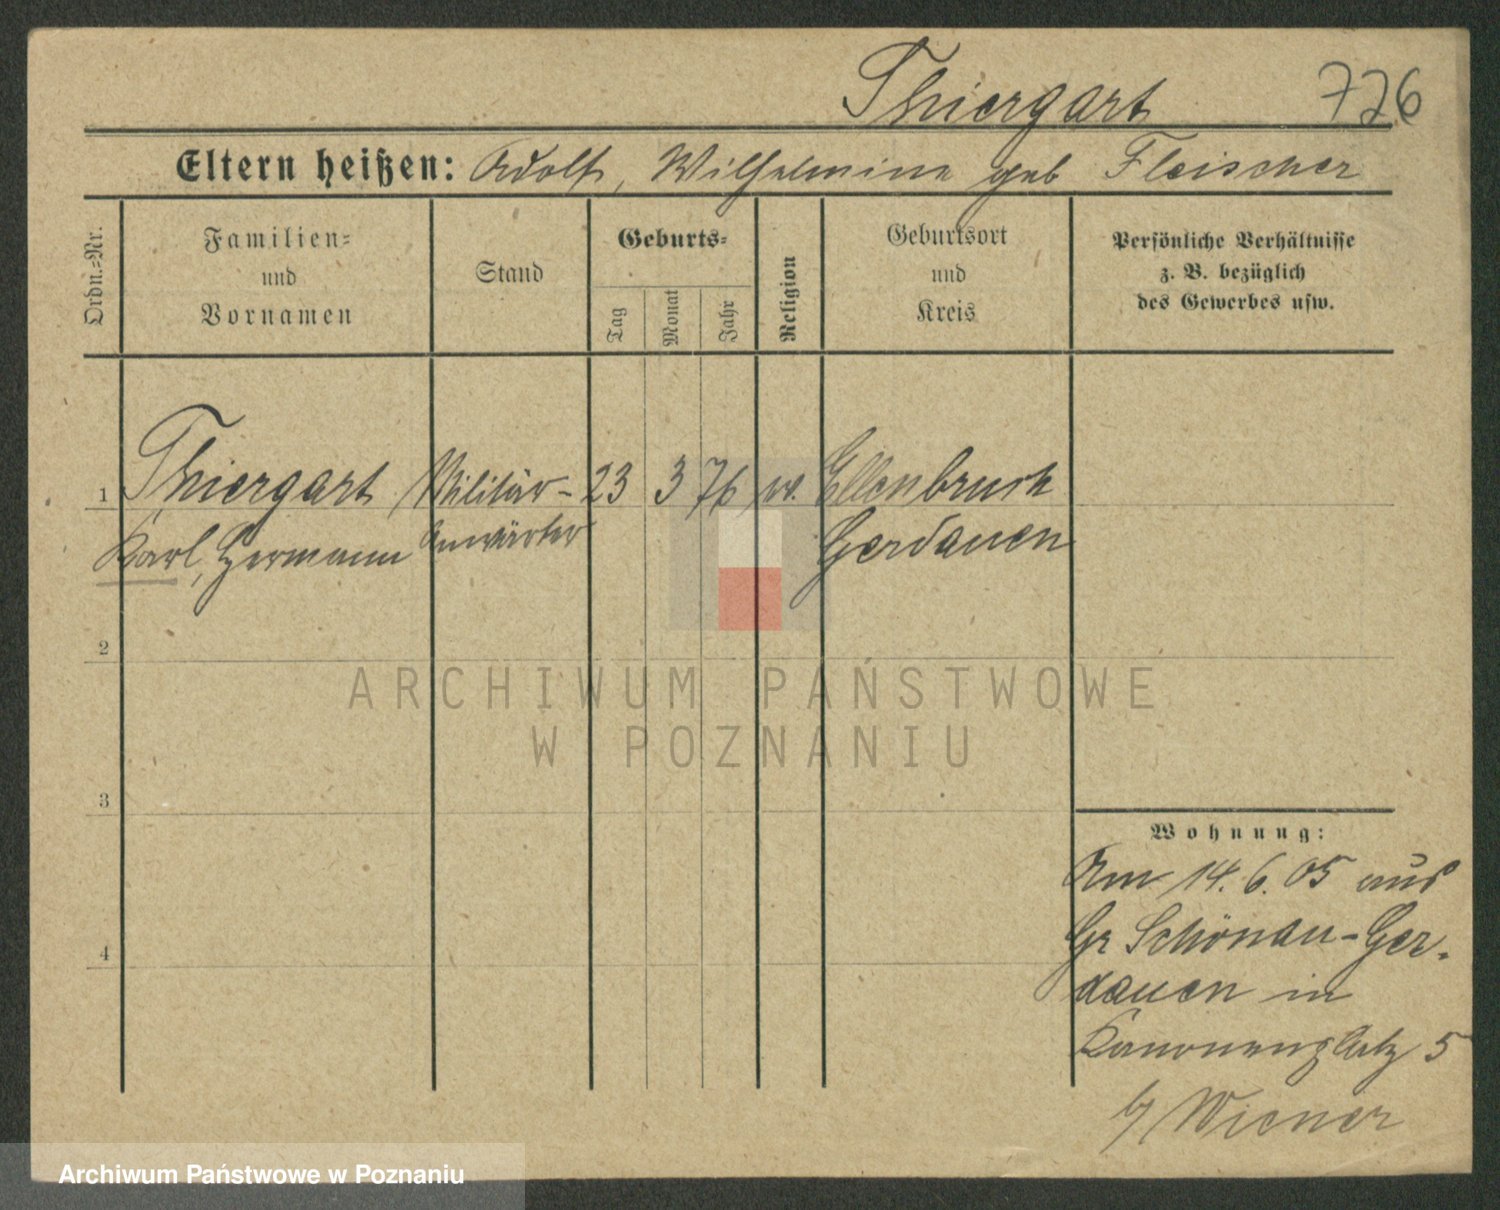 Thiergart 726
Eltern heißen: Adolf, Wilhelmine geb Fleischer
Ordn.-Nr.
Familien-
und
Vornamen
Stand
Geburts-
Tag
Monat
Jahr
Religion
Geburtsort
und
Kreis
Persönliche Verhältnisse
z. B. bezüglich
des Gewerbes usw.
1 Thiergart Militär- 23 3 76 ev. Ellenbruch
Karl, Hermann Anwärter Gerdauen
2
ARCHIWUM PAŃSTWOWE
W POZNANIU
3
Wohnung:
Am 14. 6. 05 aus
Gr Schönau-Ger-
4
dauen in
Kanonenplatz 5
b/ Wiener
Archiwum Państwowe w Poznaniu